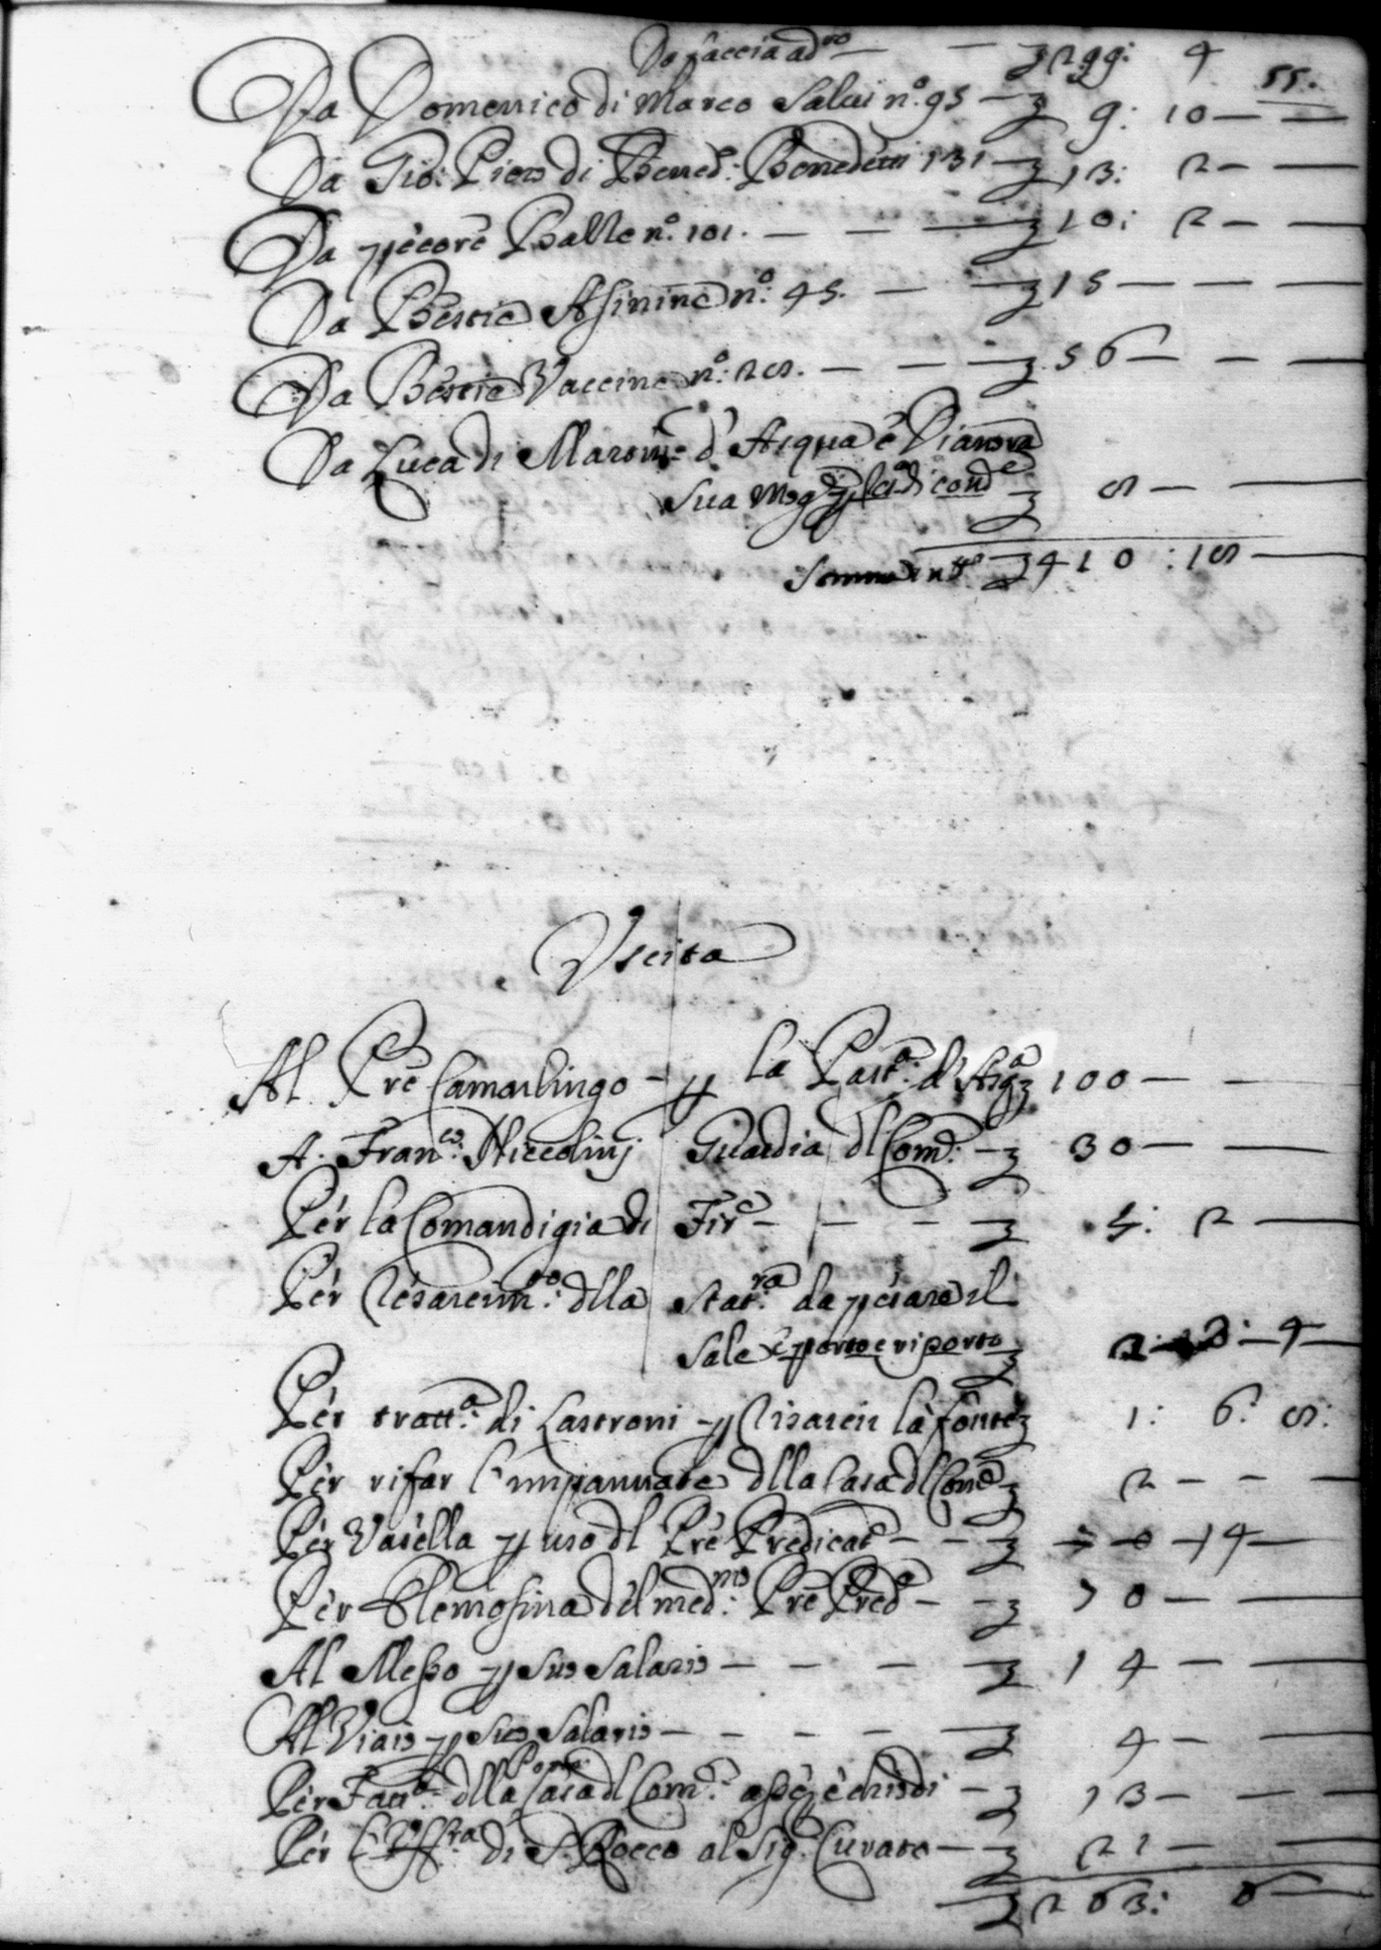 Da faccia ad.ro — — ʒ 299: 4
55.
Da Domenico di Marco Salui n.o 95 — ʒ 9: 10 — —
Da Gio: Piero di Bened: Benedetti 131 — ʒ 13: 2 — —
Da pecore Balle n.o 101. — — — ʒ 10: 2 — —
Da Bestie Asinine n.o: 45. — — ʒ 15 — — —
Da Bestie Vaccine n.o: 28. — — — ʒ 56 — — —
Da Luca di d' Acqua è
Sua ʒ 8 — —
Somma in tt.o ʒ 410 : 18 —
Vscita
Al Prē Camarlingo — p la Past.a: d' Acq.a ʒ 100 — —
A. Fran.co: Niccolinj Guardia dl Com.e: — ʒ 30 — —
Per la Comandigia di Fir.e — — — ʒ 5: 2 —
Per dlla Stat.ra: da pesare il
Sale è porto e riporto ʒ 4 —
Per tratt.a: di Lastroni p la fonte ʒ 1: 6: 8:
Per rifar l'impannate dlla Casa dl Com.e ʒ 2 — — —
Per Vasella p uso dl Prē Predicat.e — — ʒ — 14 —
Per Elemosina del med.mo: Prē Pred.e — — ʒ 70 — —
Al Messo p suo salario — — — — ʒ 14 — —
Al Viaio p suo salario — — — — — ʒ 4 — —
Per dlla Porta Casa dl Com.e: è chiodi — ʒ 13 — — —
Per di S. Rocco al Sig.r Curato — — ʒ 21 — —
— ʒ 263: 6 —